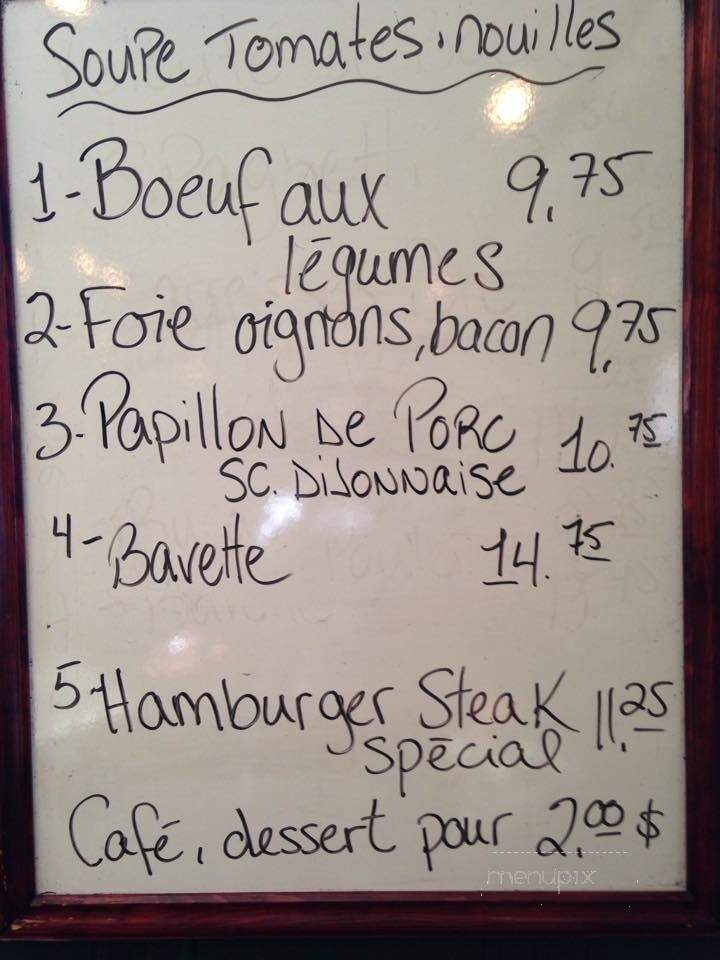 Soupe Tomates, nouilles
1- Boeuf aux 9.75
légumes
2- Foie oignons, bacon 9.75
3- Papillon de Porc 10.75
sc. Dijonnaise
4- Bavette 14.75
5- Hamburger Steak 11.25
spécial
Café, dessert pour 2.00 $
menupix